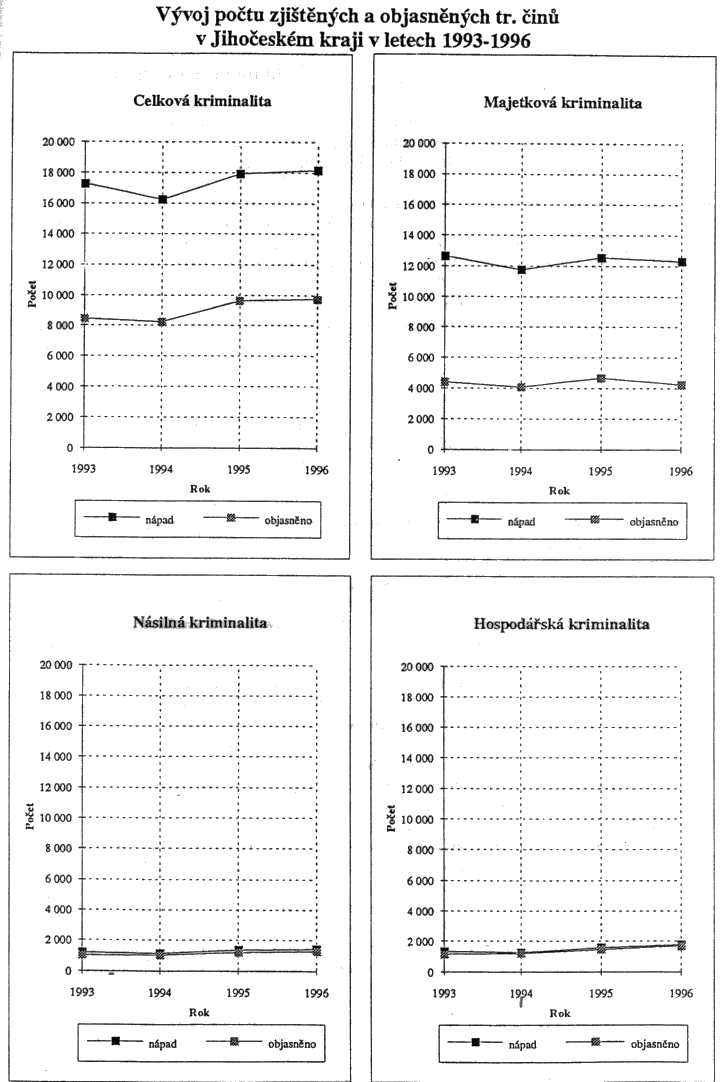 Vývoj počtu zjištěných a objasněných tr. činů
v Jihočeském kraji v letech 1993-1996
Celková kriminalita
20 000
18 000
16 000
14 000
12 000
10 000
8 000
6 000
4 000
2 000
0
Počet
1993 1994 1995 1996
Rok
nápad objasněno
Majetková kriminalita
20 000
18 000
16 000
14 000
12 000
10 000
8 000
6 000
4 000
2 000
0
Počet
1993 1994 1995 1996
Rok
nápad objasněno
Násilná kriminalita
20 000
18 000
16 000
14 000
12 000
10 000
8 000
6 000
4 000
2 000
0
Počet
1993 1994 1995 1996
Rok
nápad objasněno
Hospodářská kriminalita
20 000
18 000
16 000
14 000
12 000
10 000
8 000
6 000
4 000
2 000
0
Počet
1993 1994 1995 1996
Rok
nápad objasněno